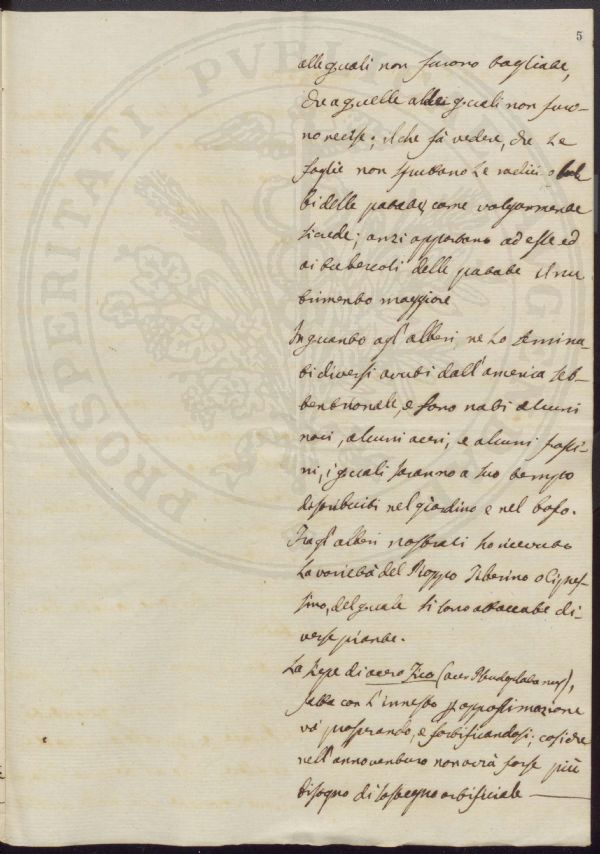 5
alle quali non furono tagliate,
che a quelle alle quali non furo-
no recise; il che fà vedere, che le
foglie non sfruttano le radici o bul
bi delle patate, come volgarmente
si crede; anzi apportano ad esse ed
ai tubercoli delle patate il nu
trimento maggiore
In quanto agl'alberi ne ho semina-
ti diversi avuti dall'america set-
tentrionale, e sono nati alcuni
noci, alcuni aceri, e alcuni frassi-
ni, i quali saranno a suo tempo
distribuiti nel giardino e nel bosco.
Fra gl'alberi nostrali ho ricevuto
la varietà del Pioppo Tiberino o Cipres-
sino, del quale si sono attaccate di-
verse piante.
La siepe di acero Fico (acer Pseudoplatanus),
fatta con l'innesto p approssimazione
và prosperando, e fortificandosi; cosicche
nell'anno venturo non avrà forse più
bisogno di sostegno artificiale —
PROSPERITATI PVBLI